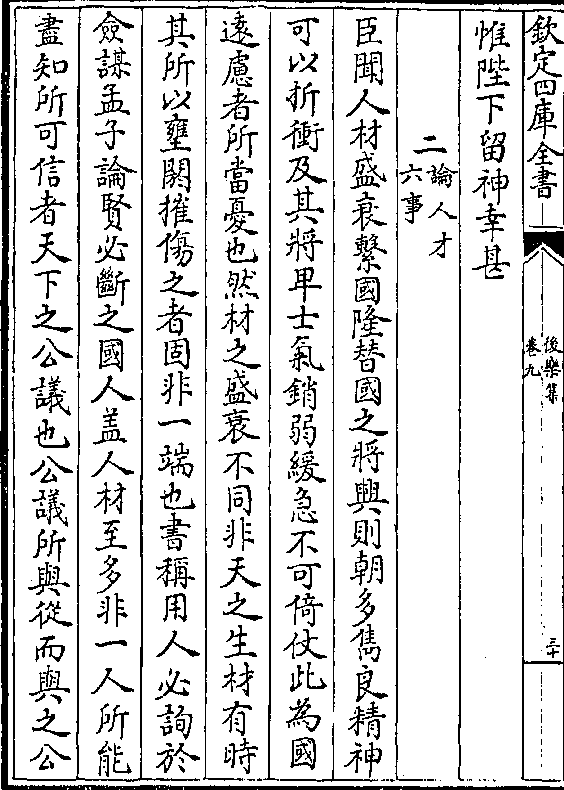 欽定四庫全書
後樂集
卷九
三十
惟陛下留神幸甚
二論人才
六事
臣聞人材盛衰繫國隆替國之將興則朝多雋良精神
可以折衝及其將卑士氣銷弱緩急不可倚仗此為國
遠慮者所當憂也然材之盛衰不同非天之生材有時
其所以壅閼摧傷之者固非一端也書稱用人必詢於
僉謀孟子論賢必斷之國人盖人材至多非一人所能
盡知所可信者天下之公議也公議所與從而與之公